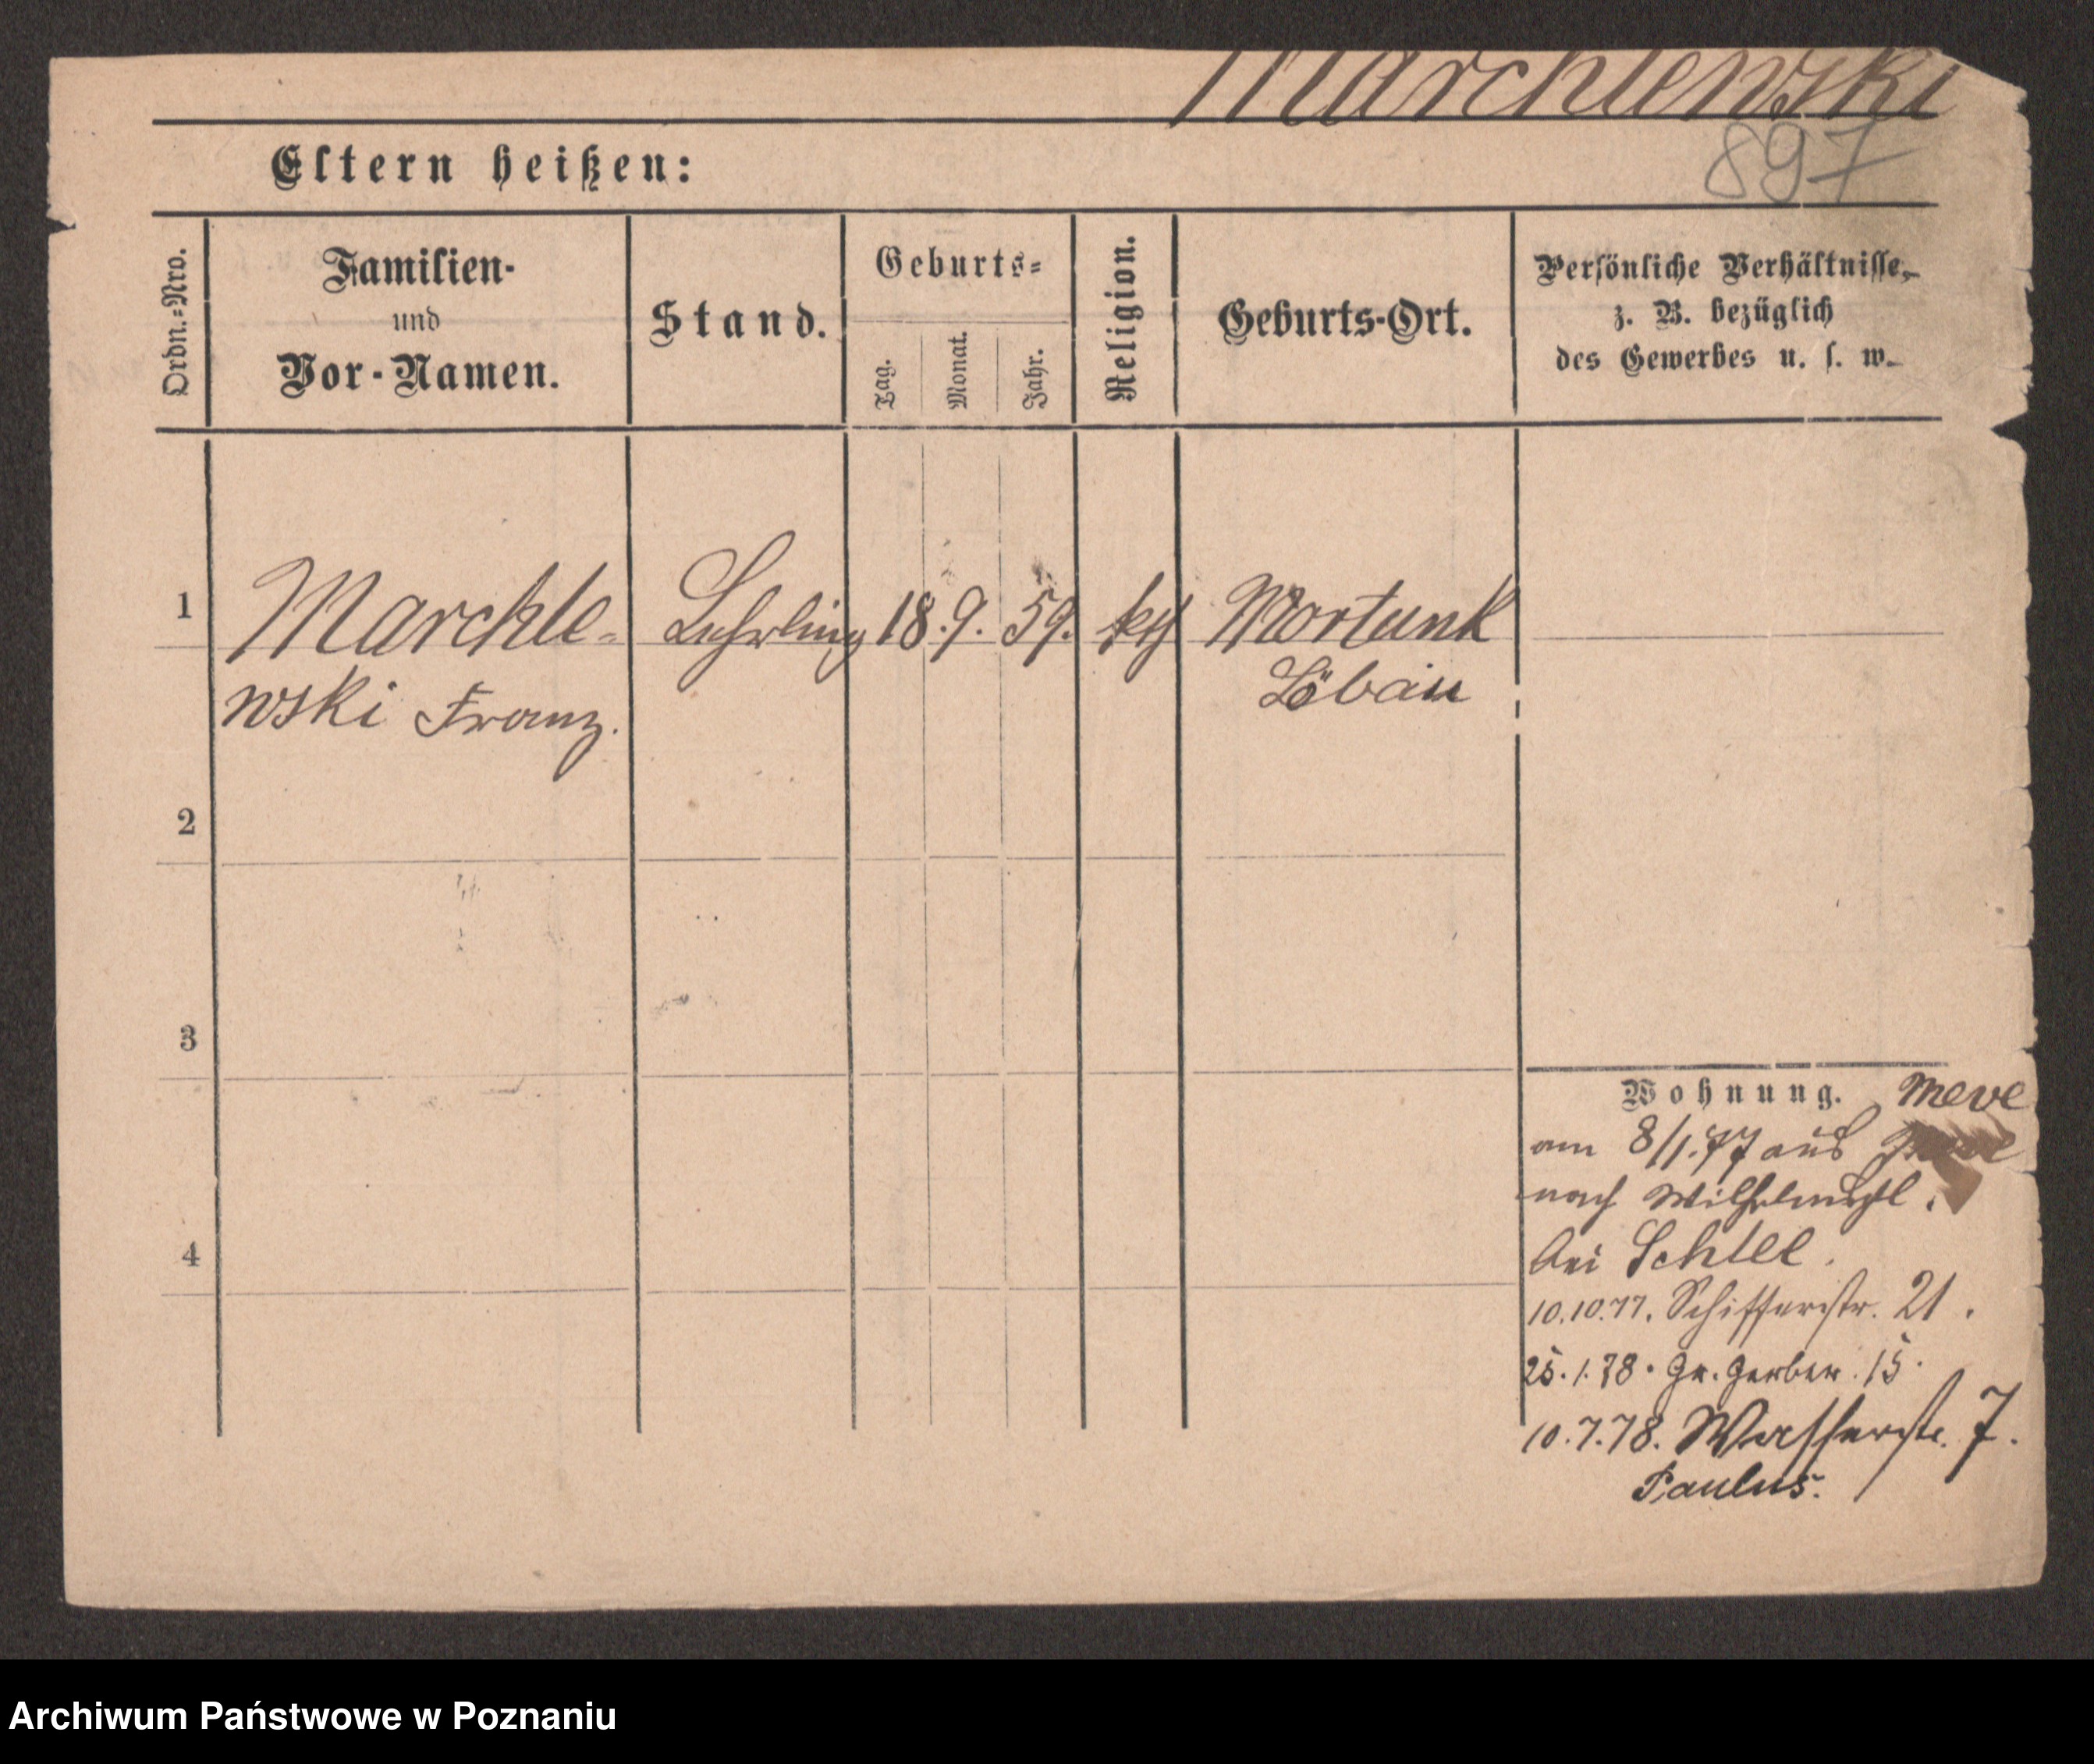 Marchlewski
897
Eltern heißen:
Ordn.=Nro.
Familien-
und
Vor-Namen.
Stand.
Geburts=
Tag.
Monat.
Jahr.
Religion.
Geburts-Ort.
Persönliche Verhältnisse,
z. B. bezüglich
des Gewerbes u. s. w.
1
Marchle=
wski Franz.
Lehrling
18. 9. 59.
kth
Mortunk
Löbau
2
3
4
Wohnung. Meve
am 8/1.77 aus
nach Wilhelmspl.
bei Schlee.
10.10.77. Schifferstr. 21.
25.1.78. Gr. Gerber. 15.
10.7.78. Wasserstr. 7.
Paulus.
Archiwum Państwowe w Poznaniu